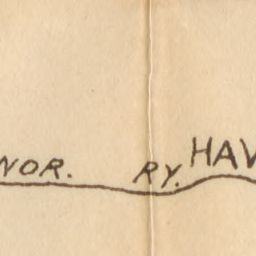 NOR. RY.
HAV